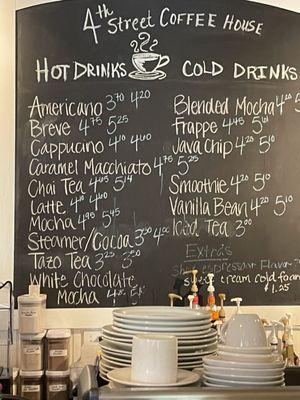 4th Street Coffee House
Hot Drinks
Americano 3.70 4.20
Breve 4.75 5.25
Cappucino 4.10 4.40
Caramel Macchiato 4.75 5.25
Chai Tea 4.65 5.14
Latte 4.10 4.40
Mocha 4.95 5.45
Steamer/Cocoa 3.50 4.00
Tazo Tea 3.25 3.50
White Chocolate
Mocha
Cold Drinks
Blended Mocha 4.20
Frappe 4.45
Java Chip 4.20 5.10
Smoothie 4.20 5.10
Vanilla Bean 4.20 5.10
Iced Tea 3.00
Extras
espresso Flavor
sweet cream cold foam
$1.25